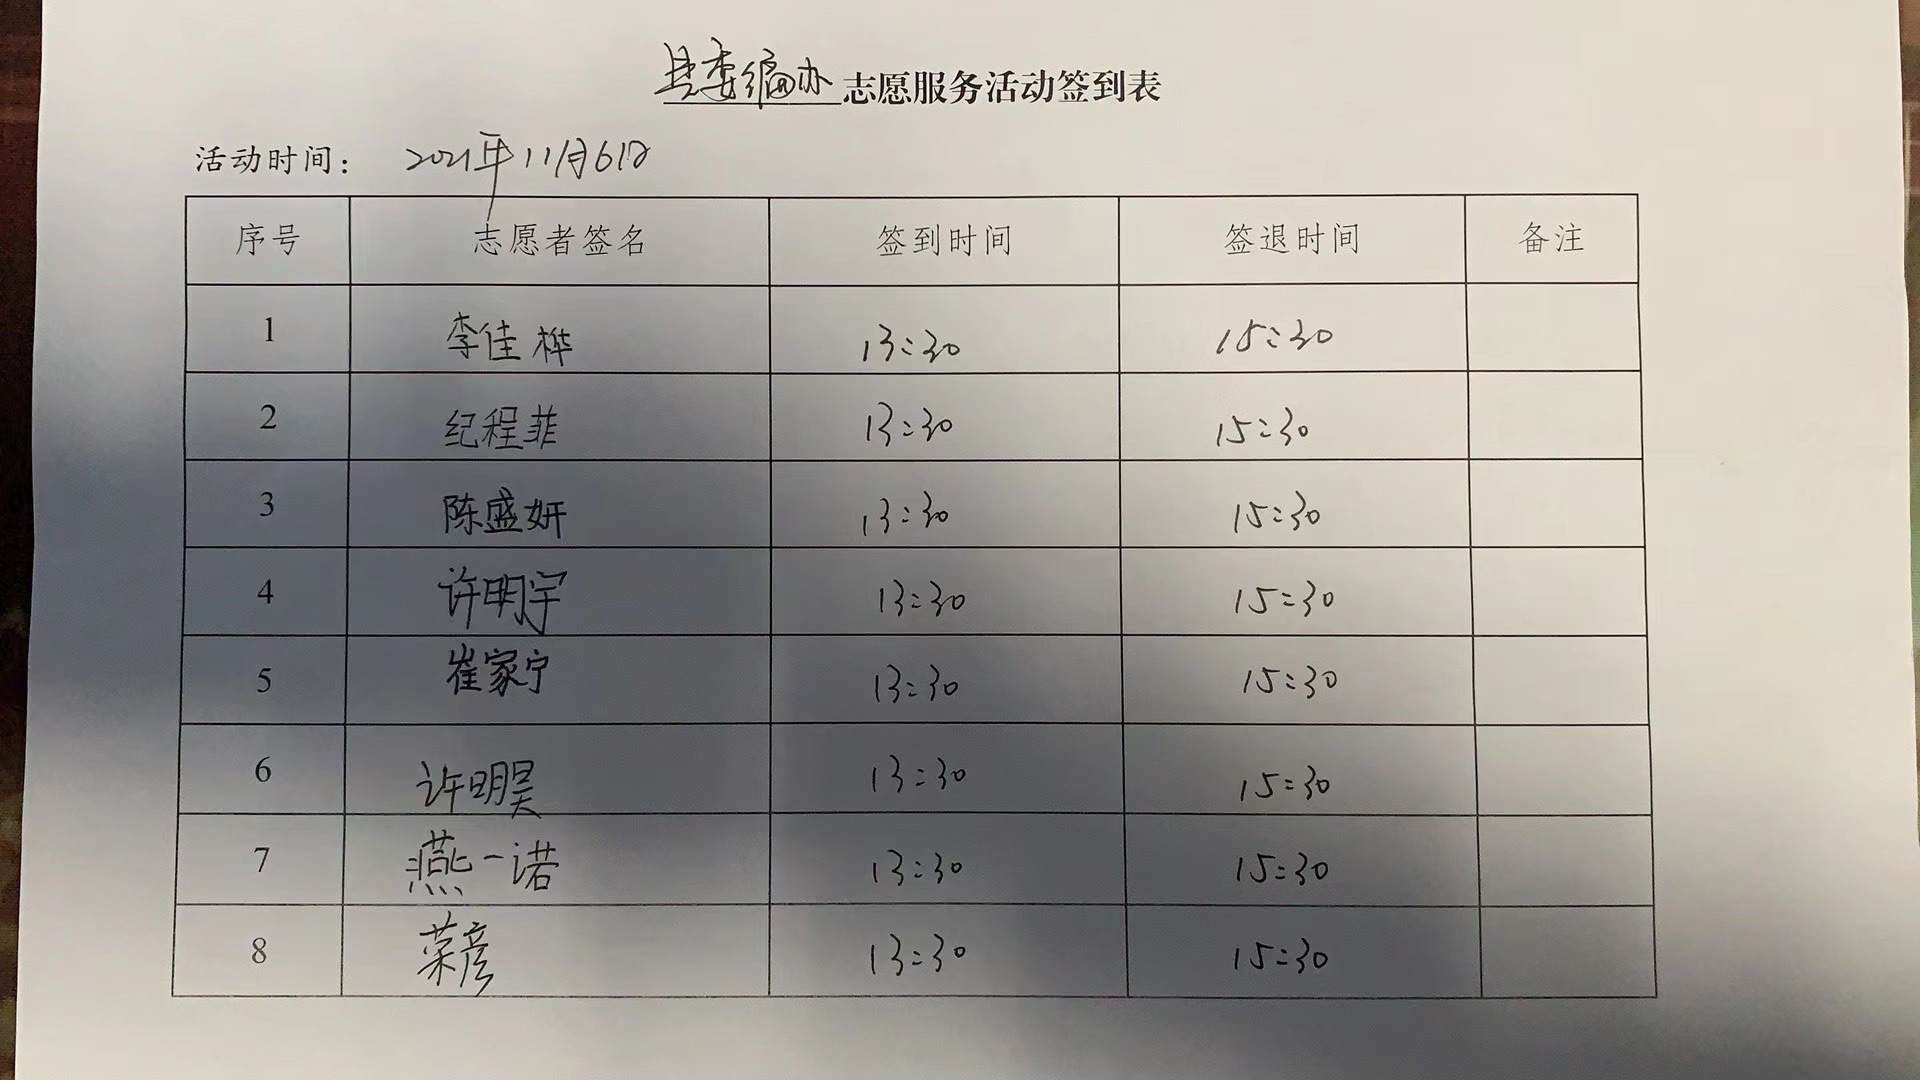 县委编办志愿服务活动签到表
活动时间： 2021年11月6日
序号 志愿者签名 签到时间 签退时间 备注
1 李佳桦 13:30 15:30
2 纪程菲 13:30 15:30
3 陈盛妍 13:30 15:30
4 许明宇 13:30 15:30
5 崔家宁 13:30 15:30
6 许明昊 13:30 15:30
7 燕一诺 13:30 15:30
8 荣彦 13:30 15:30